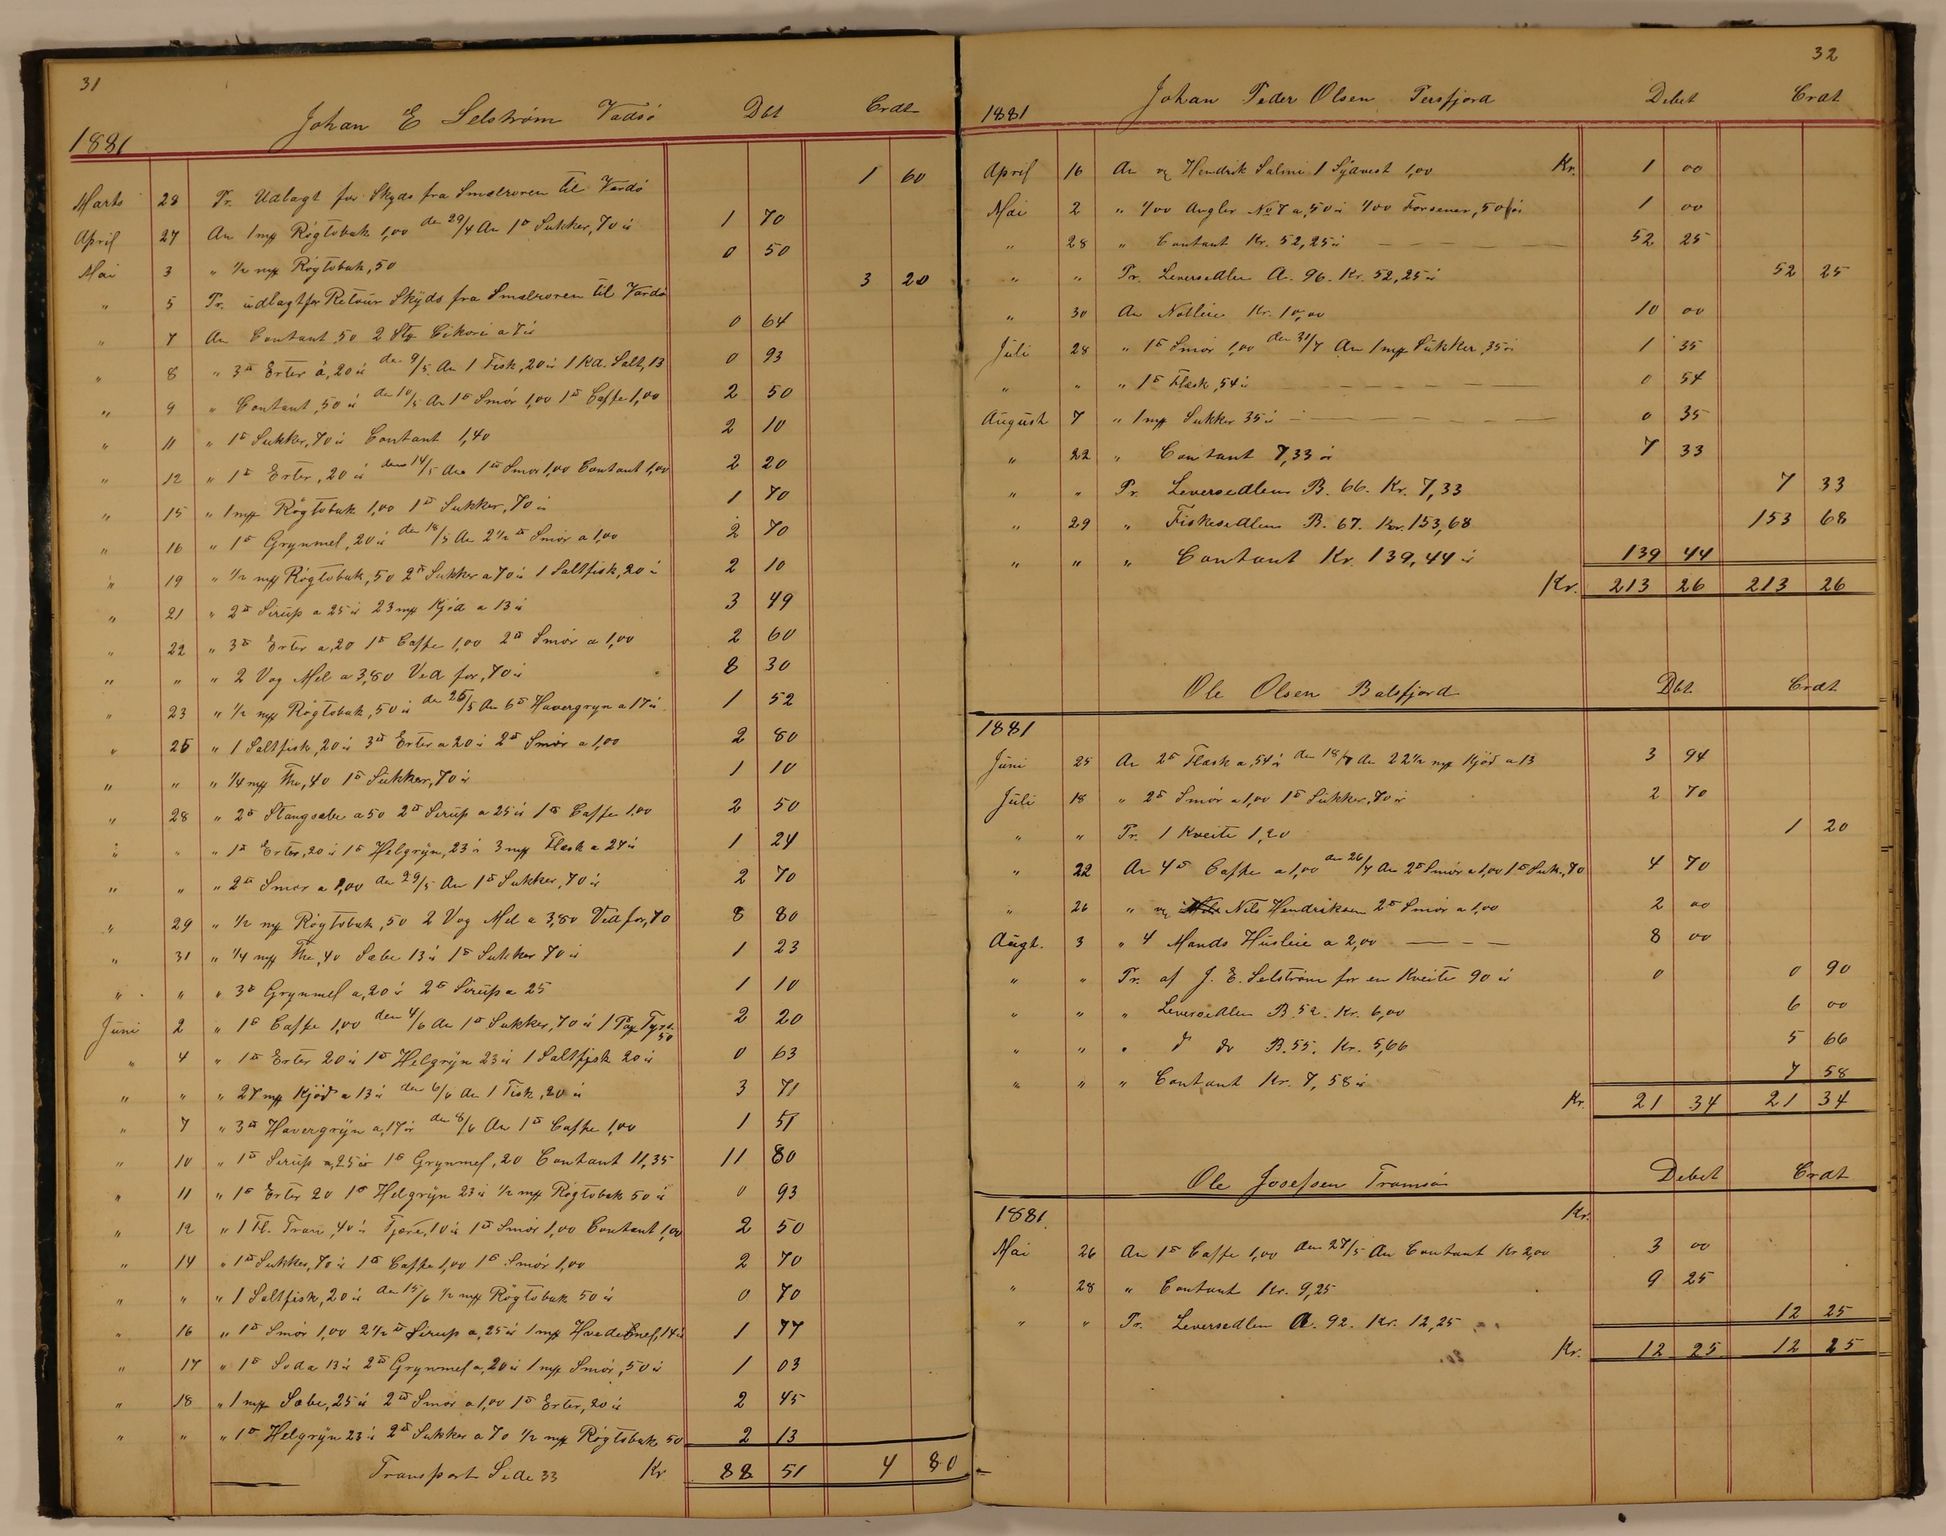 31
Johan E Selstrøm Vadsö Dbt Crdt
1881
Marts 28 Pr. Udlagt for Skyds fra Smelroren til Vardö 1 60
April 27 An 1 mff Rögtobak 1,00 den 29/4 An 1 ℔ Sukker, 70 ör 1 70
Mai 3 " 1/2 mff Rögtobak, 50 0 50
" 5 Pr. udlagt for Retour Skyds fra Smelroren til Vardö 3 20
" 7 An Contant 50 2 Stg Cikori a 7 ör 0 64
" 8 " 3 ℔ Erter á, 20 ör den 9/5. An 1 Fisk, 20 ör 1 Kd. Salt, 13 0 93
" 9 " Contant, 50 ör den 10/5 An 1 ℔ Smör 1,00 1 ℔ Caffe 1,00 2 50
" 11 " 1 ℔ Sukker, 70 ör Contant 1,40 2 10
" 12 " 1 ℔ Erter, 20 ör den 14/5 An 1 ℔ Smör 1,00 Contant 1,00 2 20
" 15 " 1 mff Rögtobak 1,00 1 ℔ Sukker, 70 ör 1 70
" 16 " 1 ℔ Grynmel, 20 ör den 18/5 An 2 1/2 ℔ Smör a 1,00 2 70
" 19 " 1/2 mff Rögtobak, 50 2 ℔ Sukker a 70 ör 1 Saltfisk, 20 ör 2 10
" 21 " 2 ℔ Sirup a 25 ör 23 mff Kjöd a 13 ör 3 49
" 22 " 3 ℔ Erter a, 20 1 ℔ Caffe 1,00 2 ℔ Smör a 1,00 2 60
" " " 2 Vog Mel a 3,80 Ved for, 70 ör 8 30
" 23 " 1/2 mff Rögtobak, 50 ör den 25/5 An 6 ℔ Havergryn a 17 ör 1 52
" 25 " 1 Saltfisk, 20 ör 3 ℔ Erter a 20 ör 2 ℔ Smör a 1,00 2 80
" " " 1/4 mff The, 40 1 ℔ Sukker, 70 ör 1 10
" 28 " 2 ℔ Stangsæbe a 50 2 ℔ Sirup a 25 ör 1 ℔ Caffe 1,00 2 50
" " " 1 ℔ Erter, 20 ör 1 ℔ Helgryn, 23 ör 3 mff Flæsk a 27 ör 1 24
" " " 2 ℔ Smör a 1,00 den 29/5 An 1 ℔ Sukker, 70 ör 2 70
" 29 " 1/2 mff Rögtobak, 50 2 Vog Mel a 3,80 Ved for, 70 8 80
" 31 " 1/4 mff The, 40 Sæbe 13 ör 1 ℔ Sukker 70 ör 1 23
" " " 3 ℔ Grynmel a, 20 ör 2 ℔ Sirup a 25 1 10
Juni 2 " 1 ℔ Caffe 1,00 den 4/6 An 1 ℔ Sukker, 70 ör 1 Pag Fyrst. 50 2 20
" 4 " 1 ℔ Erter 20 ör 1 ℔ Helgryn 23 ör 1 Saltfisk 20 ör 0 63
" " " 27 mff Kjöd a 13 ör den 6/6 An 1 Fisk, 20 ör 3 71
" 7 " 3 ℔ Havergryn a, 17 ör den 8/6 An 1 ℔ Caffe 1,00 1 51
" 10 " 1 ℔ Sirup a, 25 ör 1 ℔ Grynmel, 20 Contant 11,35 11 80
" 11 " 1 ℔ Erter 20 1 ℔ Helgryn 23 ör 1/2 mff Rögtobak 50 ör 0 93
" 12 " 1 Fl. Tran, 40 ör Tjære, 10 ör 1 ℔ Smör 1,00 Contant 1,00 2 50
" 14 " 1 ℔ Sukker, 70 ör 1 ℔ Caffe 1,00 1 ℔ Smör 1,00 2 70
" " " 1 Saltfisk, 20 ör den 15/6 1/2 mff Rögtobak 50 ör 0 70
" 16 " 1 ℔ Smör 1,00 2 1/2 ℔ Sirup a, 25 ör 1 mff Hvedemel, 14 ör 1 77
" 17 " 1 ℔ Soda 13 ör 2 ℔ Grynmel a, 20 ör 1 mff Smör, 50 ör 1 03
" 18 " 1 mff Sæbe, 25 ör 2 ℔ Smör a 1,00 1 ℔ Erter, 20 ör 2 45
" " " 1 ℔ Helgryn 23 ör 2 ℔ Sukker a 70 1/2 mff Rögtobak 50 2 13
Transport Side 33 Kr 88 51 4 80
32
1881 Johan Peder Olsen Persfjord Debet Crdt
April 16 An v/ Hendrik Salmi 1 Sydvest 1,00 Kr. 1 00
Mai 2 " 100 Angler No 7 a, 50 ör 100 Forsener, 50 ör 1 00
" 28 " Contant Kr. 52,25 ör 52 25
" " Pr. Leversedlen A. 96. Kr. 52,25 ör 52 25
" 30 An Notleie Kr. 10,00 10 00
Juli 28 " 1 ℔ Smör 1,00 den 31/7 An 1 mff Sukker, 35 ör 1 35
" " " 1 ℔ Flæsk, 54 ör 0 54
August 7 " 1 mff Sukker 35 ör 0 35
" 22 " Contant 7,33 ör 7 33
" " Pr. Leversedlen B. 66. Kr. 7,33 7 33
" 29 " Fiskesedlen B. 67. Kr. 153,68 153 68
" " " Contant Kr. 139,44 ör 139 44
Kr. 213 26 213 26
Ole Olsen Balsfjord Dbt. Crdt
1881
Juni 25 An 2 ℔ Flæsk a, 54 ör den 18/7 An 22 1/2 mff Kjöd a 13 3 94
Juli 18 " 2 ℔ Smör a 1,00 1 ℔ Sukker, 70 ör 2 70
" " Pr. 1 Kveite 1,20 1 20
" 22 An 4 ℔ Caffe a 1,00 den 26/7 An 2 ℔ Smör a 1,00 1 ℔ Suk., 70 4 70
" 26 " v/ Nils Hendriksen 2 ℔ Smör a 1,00 2 00
Augt. 3 " 4 Mands Husleie a 2,00 8 00
" " Pr. af J. E. Selström for en Kveite 90 ör 0 0 90
" " " Leversedlen B. 52. Kr. 6,00 6 00
" " " d do B. 55. Kr. 5,66 5 66
" " " Contant Kr. 7,58 ör 7 58
Kr. 21 34 21 34
Ole Josefsen Tromsö Debet Crdt
1881. Kr.
Mai 26 An 1 ℔ Caffe 1,00 den 27/5 An Contant Kr 2,00 3 00
" 28 " Contant Kr. 9,25 9 25
" " Pr. Leversedlen A. 92. Kr. 12,25 12 25
Kr. 12 25 12 25